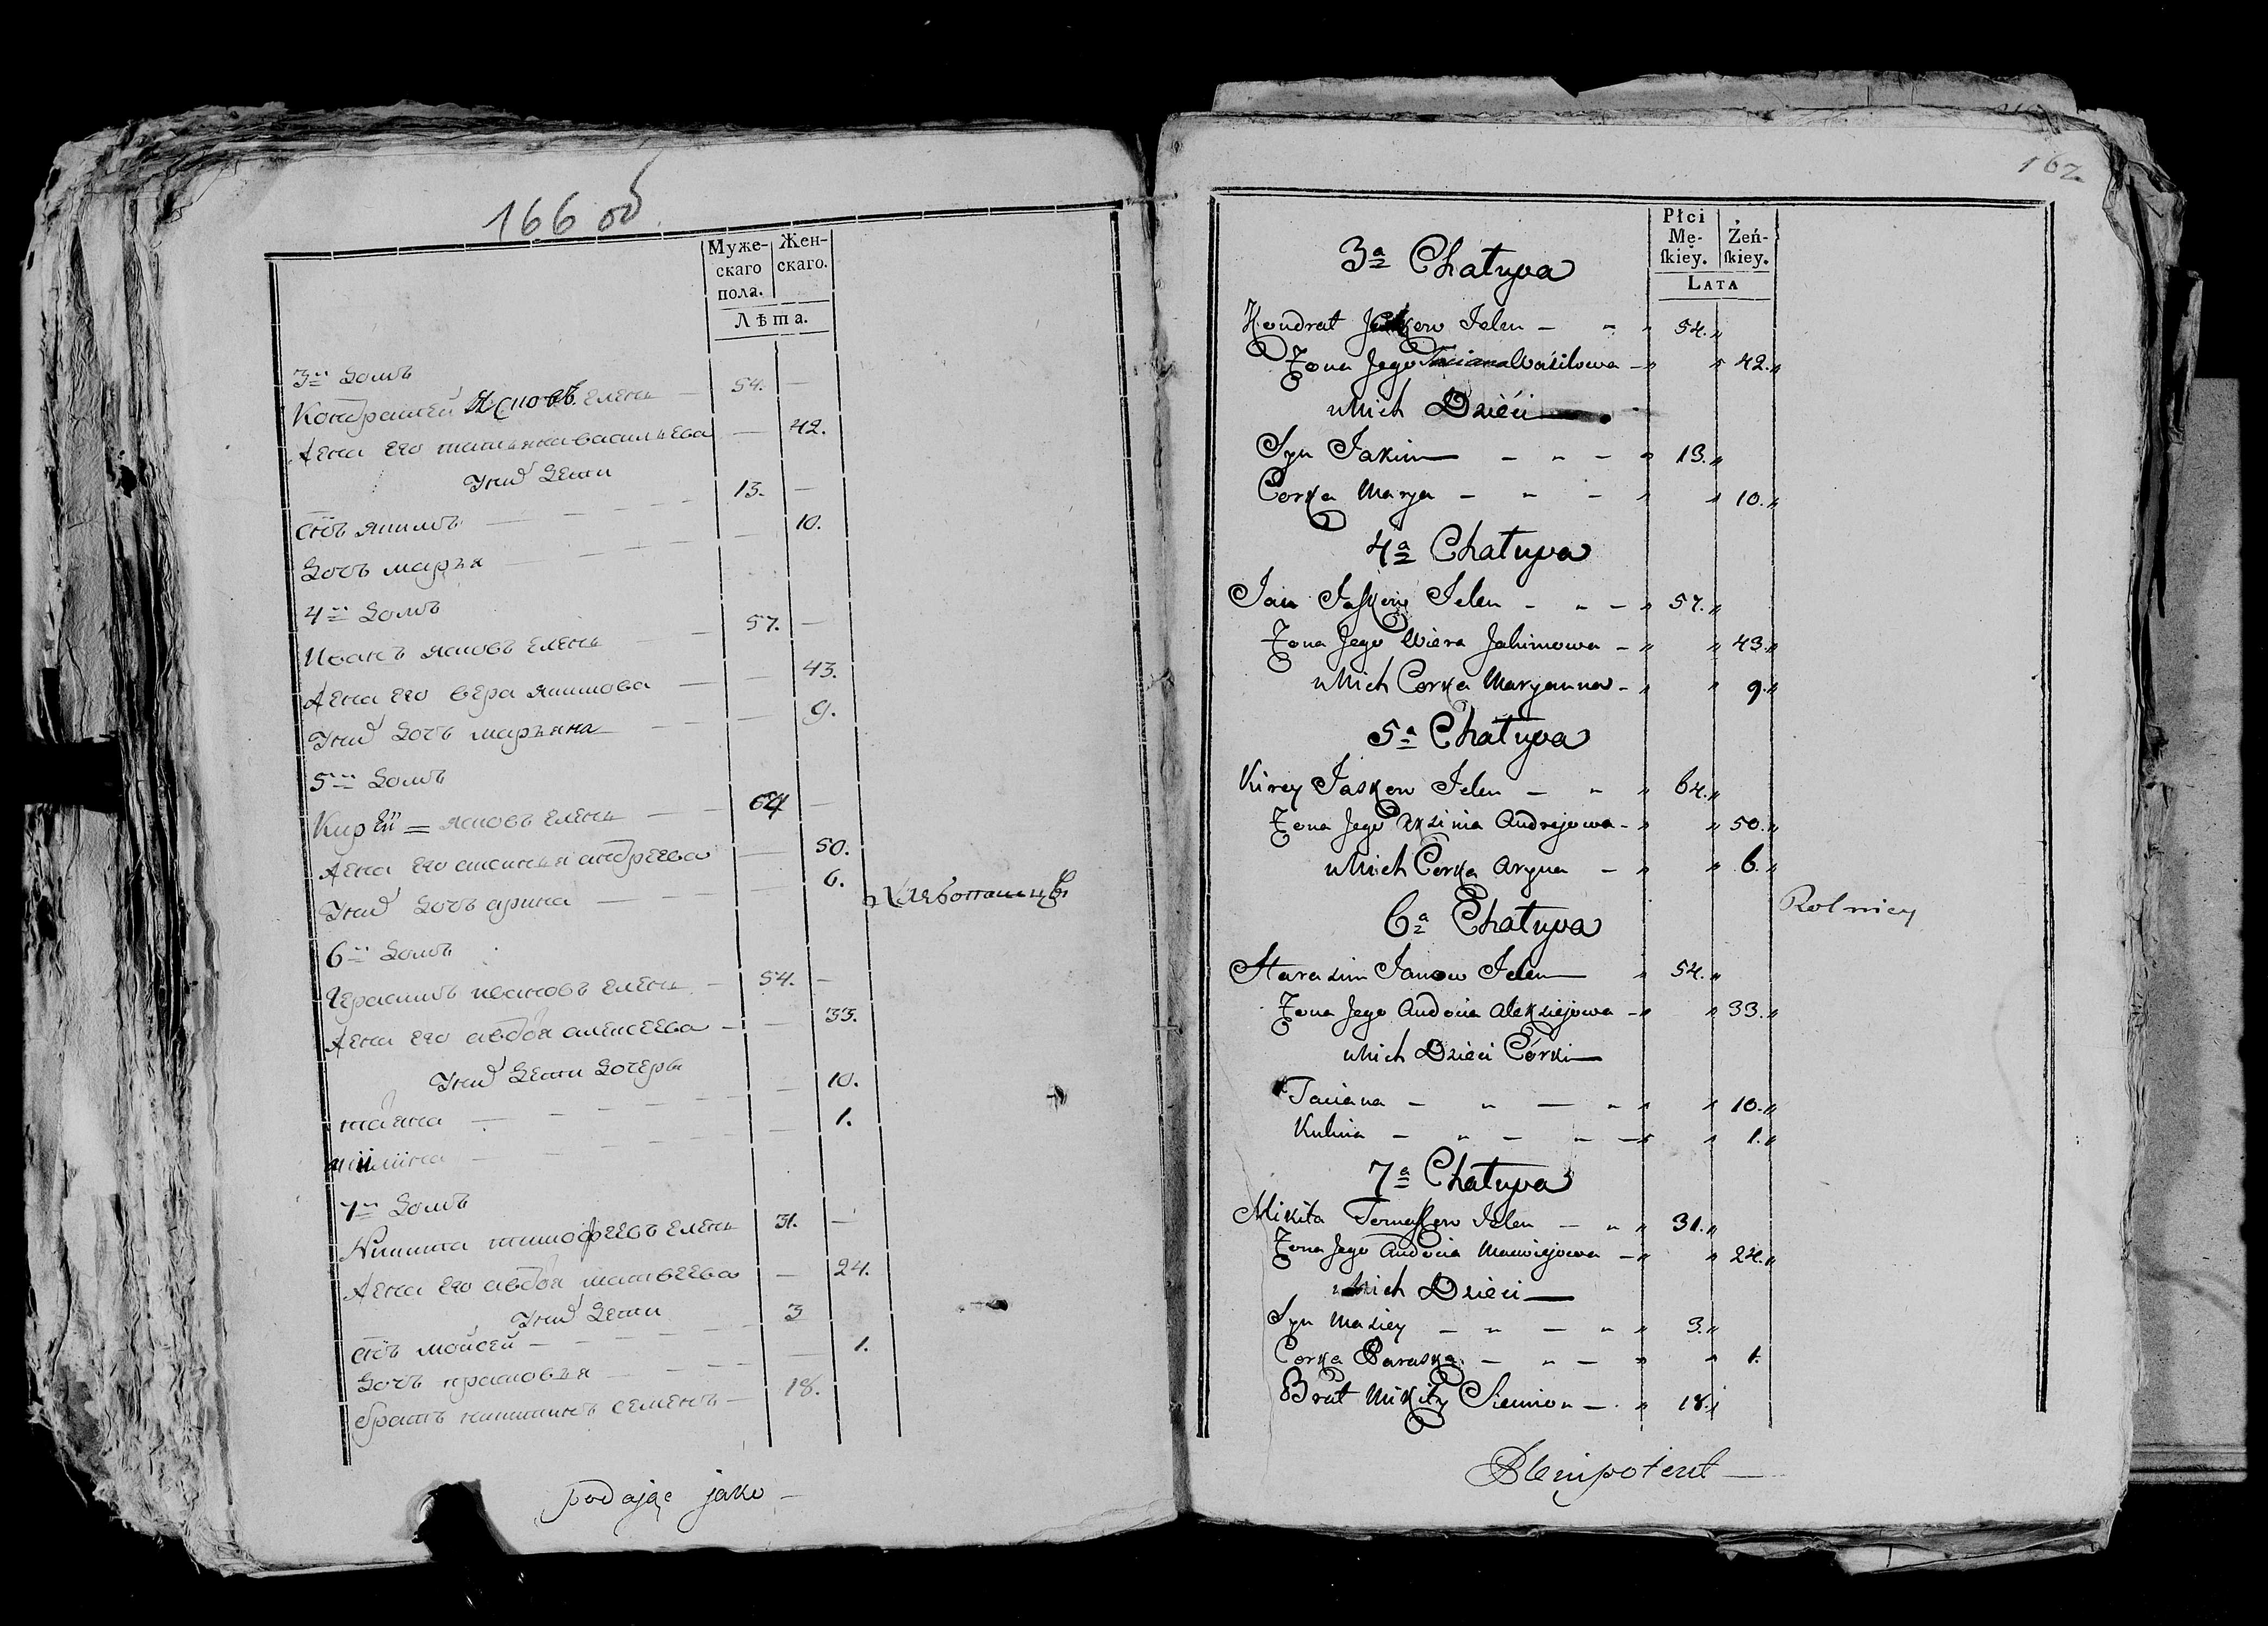 166 об
Муже-
скаго
пола.
Жен-
скаго.
Лѣта.
3й домъ
Кондратей Яковъ елень — 54. —
Жена его татьяна васильева — 42.
У нихъ дети
сынъ якимъ — 13. —
дочь марья — 10.
4й домъ
Иванъ яковъ елень — 57. —
Жена его вера якимова — 43.
У нихъ дочь марьяна — 9.
5й домъ
Кирѣй = яковъ елень — 64 —
Жена его аксинья андреева — 50.
У нихъ дочь арина — 6.
хлебопашцы
6й домъ
Герасимъ ивановъ елень — 54. —
Жена его авдотя алексеева — 33.
У нихъ дети дочери
татяна — 10.
— 1.
7й домъ
Никита тимофеевъ елень 31. —
Жена его авдотя матвеева — 24.
У нихъ дети
сынъ мойсей — 3
дочь прасковья — 1.
братъ никитинъ семенъ — 18.
podając jako —
162
Płci
Mę-
ſkiey.
Żeń-
ſkiey.
LATA
3a Chatupa
Kondrat Jaskow Jelen — " " 54."
Żona Jego Taciana Wasilowa — " " 42."
u Nich Dzieci
Syn Jakim — " — " 13."
Corka Marya — " — " " 10."
4a Chatupa
Jan Jaskow Jelen — " — " 57."
Żona Jego Wiera Jakimowa — " " 43."
u Nich Corka Maryanna — " " 9."
5a Chatupa
Kirey Jaskow Jelen — " " 64."
Żona Jego Axinia Andrejowa — " " 50."
u Nich Corka Aryna — " " 6."
Rolnicy
6a Chatupa
Harasim Janow Jelen " 54."
Żona Jego Audocia Aleksiejowa — " " 33."
u Nich Dzieci Córki
Taciana — " — " " " 10."
Kulina — " — " — " " 1."
7a Chatupa
Mikita Jelen — " " 31."
Żona Jego Audocia Maciejowa — " " 24."
u Nich Dzieci
Syn — " — " " 3."
Corka Paraska — " — " " 1.
Brat Mikity Siemion — " 18."
Plenipotent —